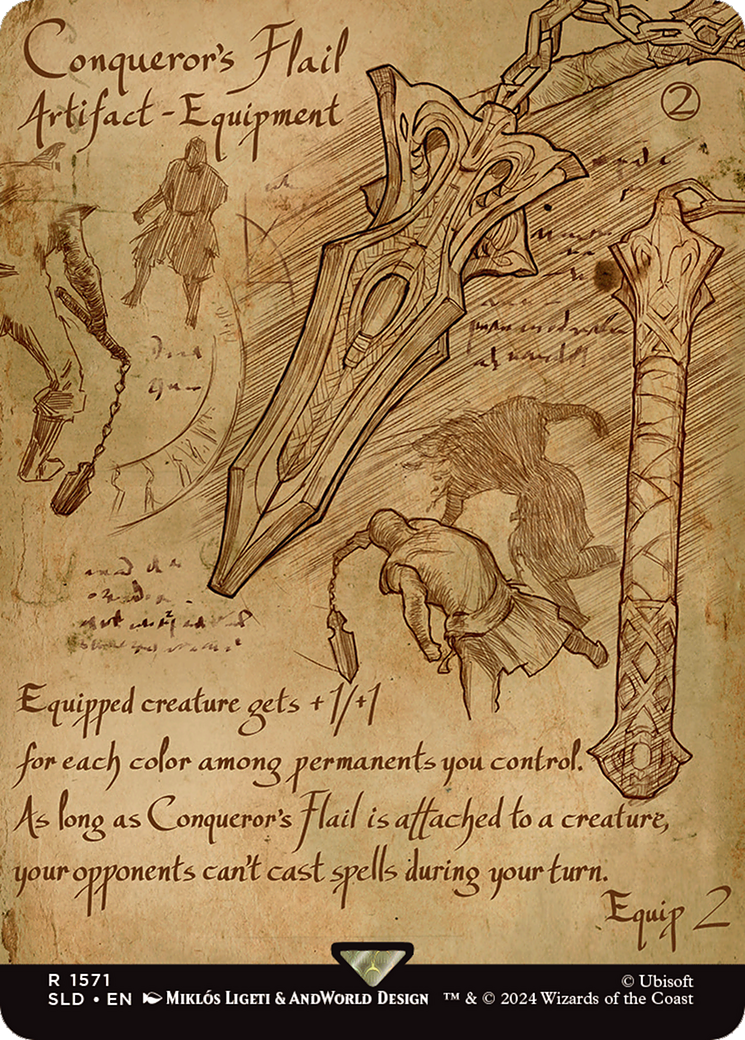 Conqueror's Flail
Artifact - Equipment
2
Equipped creature gets +1/+1
for each color among permanents you control.
As long as Conqueror's Flail is attached to a creature,
your opponents can't cast spells during your turn.
Equip 2
R 1571
SLD • EN Miklós Ligeti & AndWorld Design
© Ubisoft
™ & © 2024 Wizards of the Coast